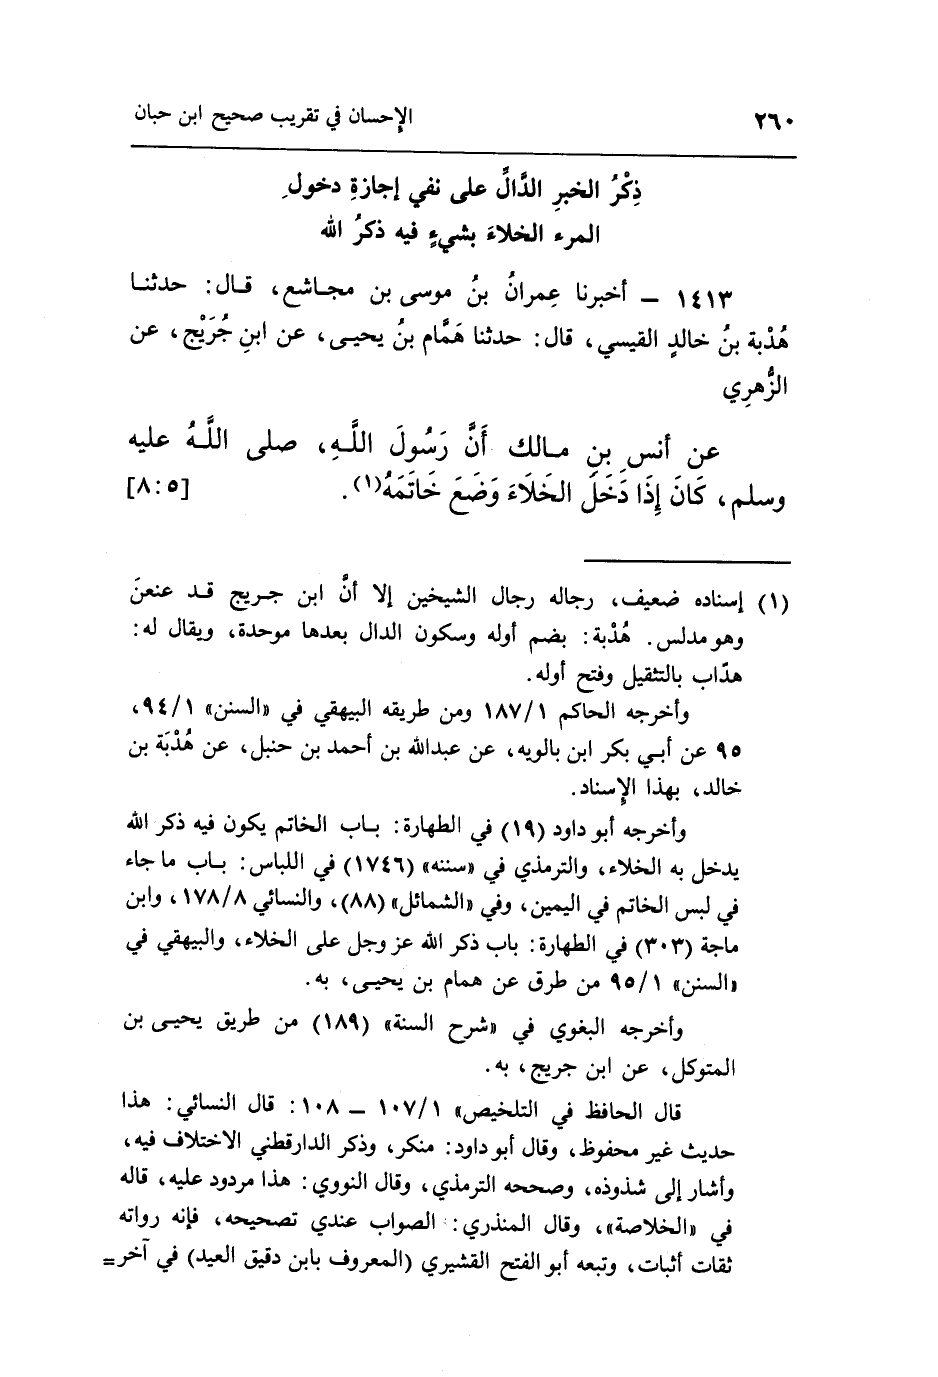 ٢٦٠ الإحسان في تقريب صحيح ابن حبان
ذِكْرُ الخبرِ الدَّالِّ على نفي إجازةِ دخولِ
المرء الخلاءَ بشيءٍ فيه ذكرُ الله
١٤١٣ – أخبرنا عِمرانُ بنُ موسى بن مجاشع، قال: حدثنا
هُدْبة بنُ خالدٍ القيسي، قال: حدثنا هَمَّام بنُ يحيى، عن ابنِ جُرَيْج، عن
الزُّهرِي
عن أنسِ بنِ مالك أَنَّ رَسُولَ اللَّهِ، صلى اللَّهُ عليه
وسلم، كَانَ إِذَا دَخَلَ الخَلَاءَ وَضَعَ خَاتَمَهُ(١). [٨:٥]
(١) إسناده ضعيف، رجاله رجال الشيخين إلا أنَّ ابن جريج قد عنعنَ
وهو مدلس. هُدْبة: بضم أوله وسكون الدال بعدها موحدة، ويقال له:
هدّاب بالتثقيل وفتح أوله.
وأخرجه الحاكم ١٨٧/١ ومن طريقه البيهقي في «السنن» ٩٤/١،
٩٥ عن أبي بكر ابن بالويه، عن عبدالله بن أحمد بن حنبل، عن هُدْبَة بن
خالد، بهذا الإسناد.
وأخرجه أبو داود (١٩) في الطهارة: باب الخاتم يكون فيه ذكر الله
يدخل به الخلاء، والترمذي في «سننه» (١٧٤٦) في اللباس: باب ما جاء
في لبس الخاتم في اليمين، وفي «الشمائل» (٨٨)، والنسائي ١٧٨/٨، وابن
ماجة (٣٠٣) في الطهارة: باب ذكر الله عز وجل على الخلاء، والبيهقي في
«السنن» ٩٥/١ من طرق عن همام بن يحيى، به.
وأخرجه البغوي في «شرح السنة» (١٨٩) من طريق يحيى بن
المتوكل، عن ابن جريج، به.
قال الحافظ في التلخيص» ١٠٧/١ – ١٠٨: قال النسائي: هذا
حديث غير محفوظ، وقال أبو داود: منكر، وذكر الدارقطني الاختلاف فيه،
وأشار إلى شذوذه، وصححه الترمذي، وقال النووي: هذا مردود عليه، قاله
في «الخلاصة»، وقال المنذري: الصواب عندي تصحيحه، فإنه رواته
ثقات أثبات، وتبعه أبو الفتح القشيري (المعروف بابن دقيق العيد) في آخر=